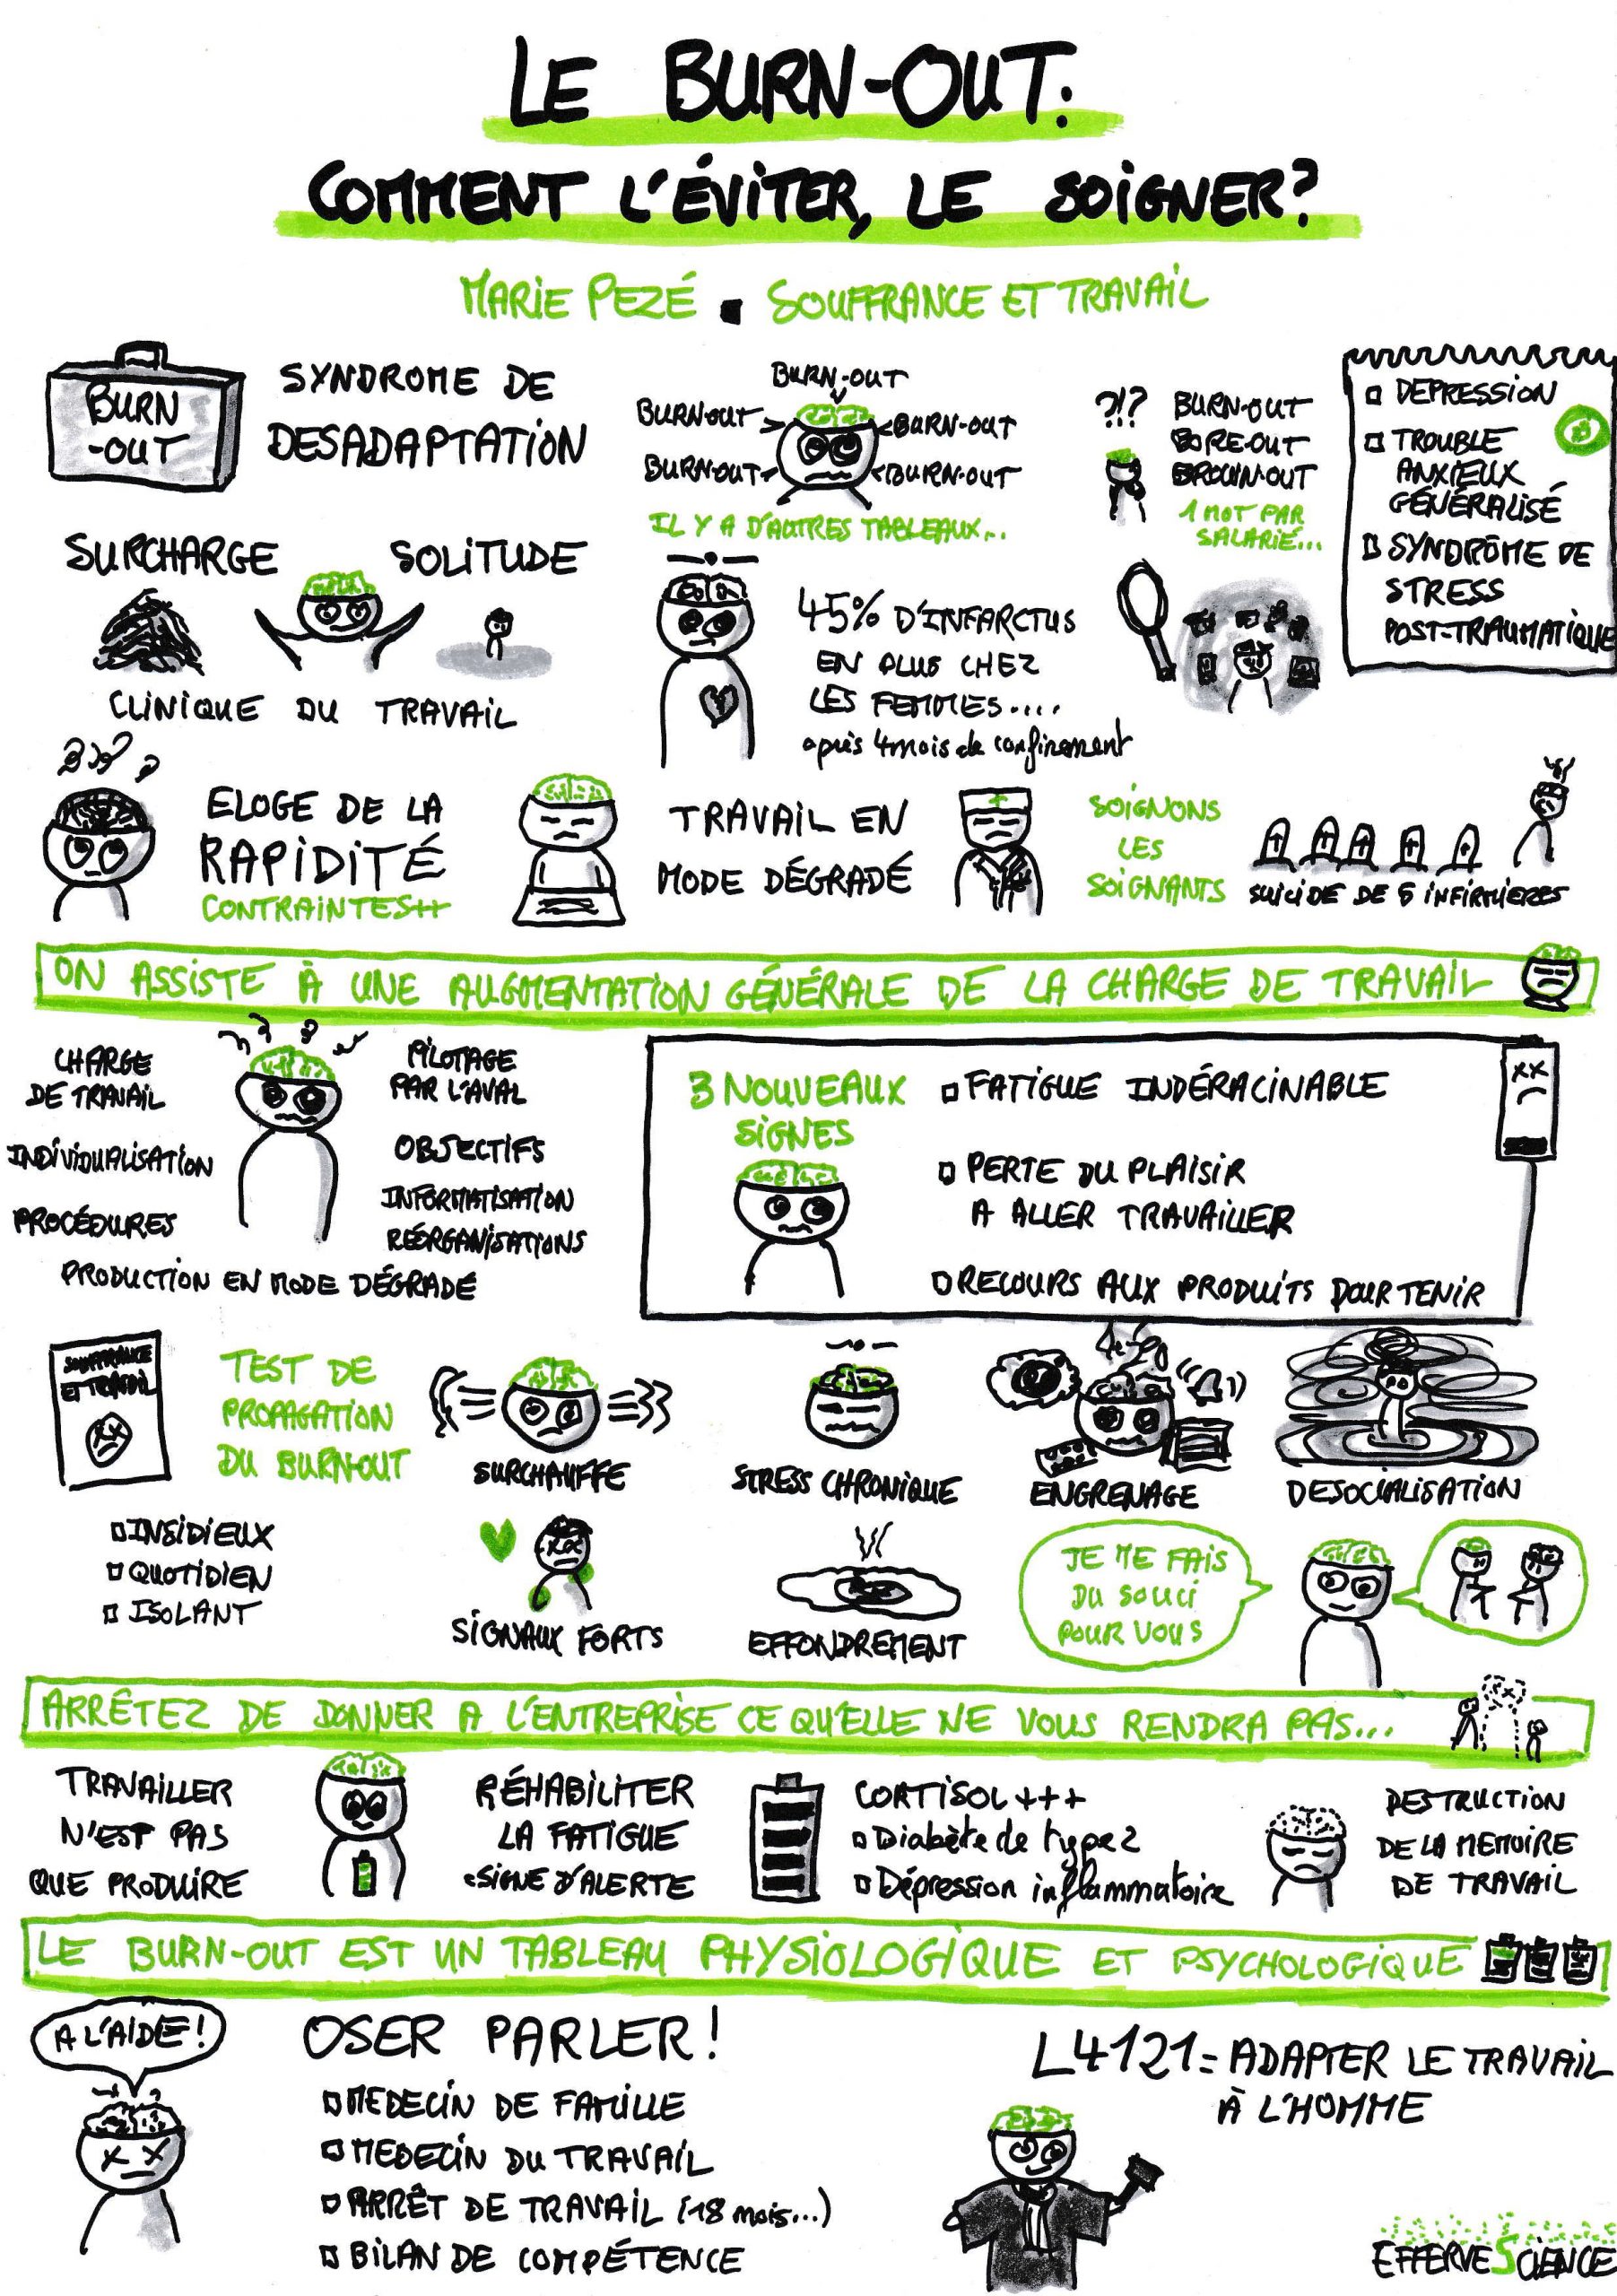 LE BURN-OUT:
COMMENT L'ÉVITER, LE SOIGNER?
MARIE PEZÉ ▪ SOUFFRANCE ET TRAVAIL
BURN
-OUT
SYNDROME DE
DESADAPTATION
SURCHARGE
SOLITUDE
CLINIQUE DU TRAVAIL
BURN-OUT
BURN-OUT
BURN-OUT
BURN-OUT
BURN-OUT
IL Y A D'AUTRES TABLEAUX...
?!?
BURN-OUT
BORE-OUT
BROWN-OUT
1 MOT PAR
SALARIÉ...
DEPRESSION
TROUBLE
ANXIEUX
GÉNÉRALISÉ
SYNDRÔME DE
STRESS
POST-TRAUMATIQUE
45% D'INFARCTUS
EN PLUS CHEZ
LES FEMMES....
après 4 mois de confinement
ELOGE DE LA
RAPIDITÉ
CONTRAINTES++
TRAVAIL EN
MODE DÉGRADÉ
SOIGNONS
LES
SOIGNANTS
SUICIDE DE 5 INFIRMIERES
ON ASSISTE À UNE AUGMENTATION GÉNÉRALE DE LA CHARGE DE TRAVAIL
CHARGE
DE TRAVAIL
INDIVIDUALISATION
PROCÉDURES
PILOTAGE
PAR L'AVAL
OBJECTIFS
INFORMATISATION
RÉORGANISATIONS
PRODUCTION EN MODE DÉGRADÉ
3 NOUVEAUX
SIGNES
FATIGUE INDÉRACINABLE
PERTE DU PLAISIR
A ALLER TRAVAILLER
RECOURS AUX PRODUITS POUR TENIR
SOUFFRANCE
ET TRAVAIL
TEST DE
PROPAGATION
DU BURN-OUT
SURCHAUFFE
STRESS CHRONIQUE
ENGRENAGE
DESOCIALISATION
INSIDIEUX
QUOTIDIEN
ISOLANT
SIGNAUX FORTS
EFFONDREMENT
JE ME FAIS
DU SOUCI
POUR VOUS
ARRÊTEZ DE DONNER A L'ENTREPRISE CE QU'ELLE NE VOUS RENDRA PAS...
TRAVAILLER
N'EST PAS
QUE PRODUIRE
RÉHABILITER
LA FATIGUE
=SIGNE D'ALERTE
CORTISOL +++
Diabète de type 2
Dépression inflammatoire
DESTRUCTION
DE LA MEMOIRE
DE TRAVAIL
LE BURN-OUT EST UN TABLEAU PHYSIOLOGIQUE ET PSYCHOLOGIQUE
A L'AIDE!
OSER PARLER!
MEDECIN DE FAMILLE
MEDECIN DU TRAVAIL
ARRÊT DE TRAVAIL (18 mois...)
BILAN DE COMPÉTENCE
L4121= ADAPTER LE TRAVAIL
À L'HOMME
EFFERVESCIENCE